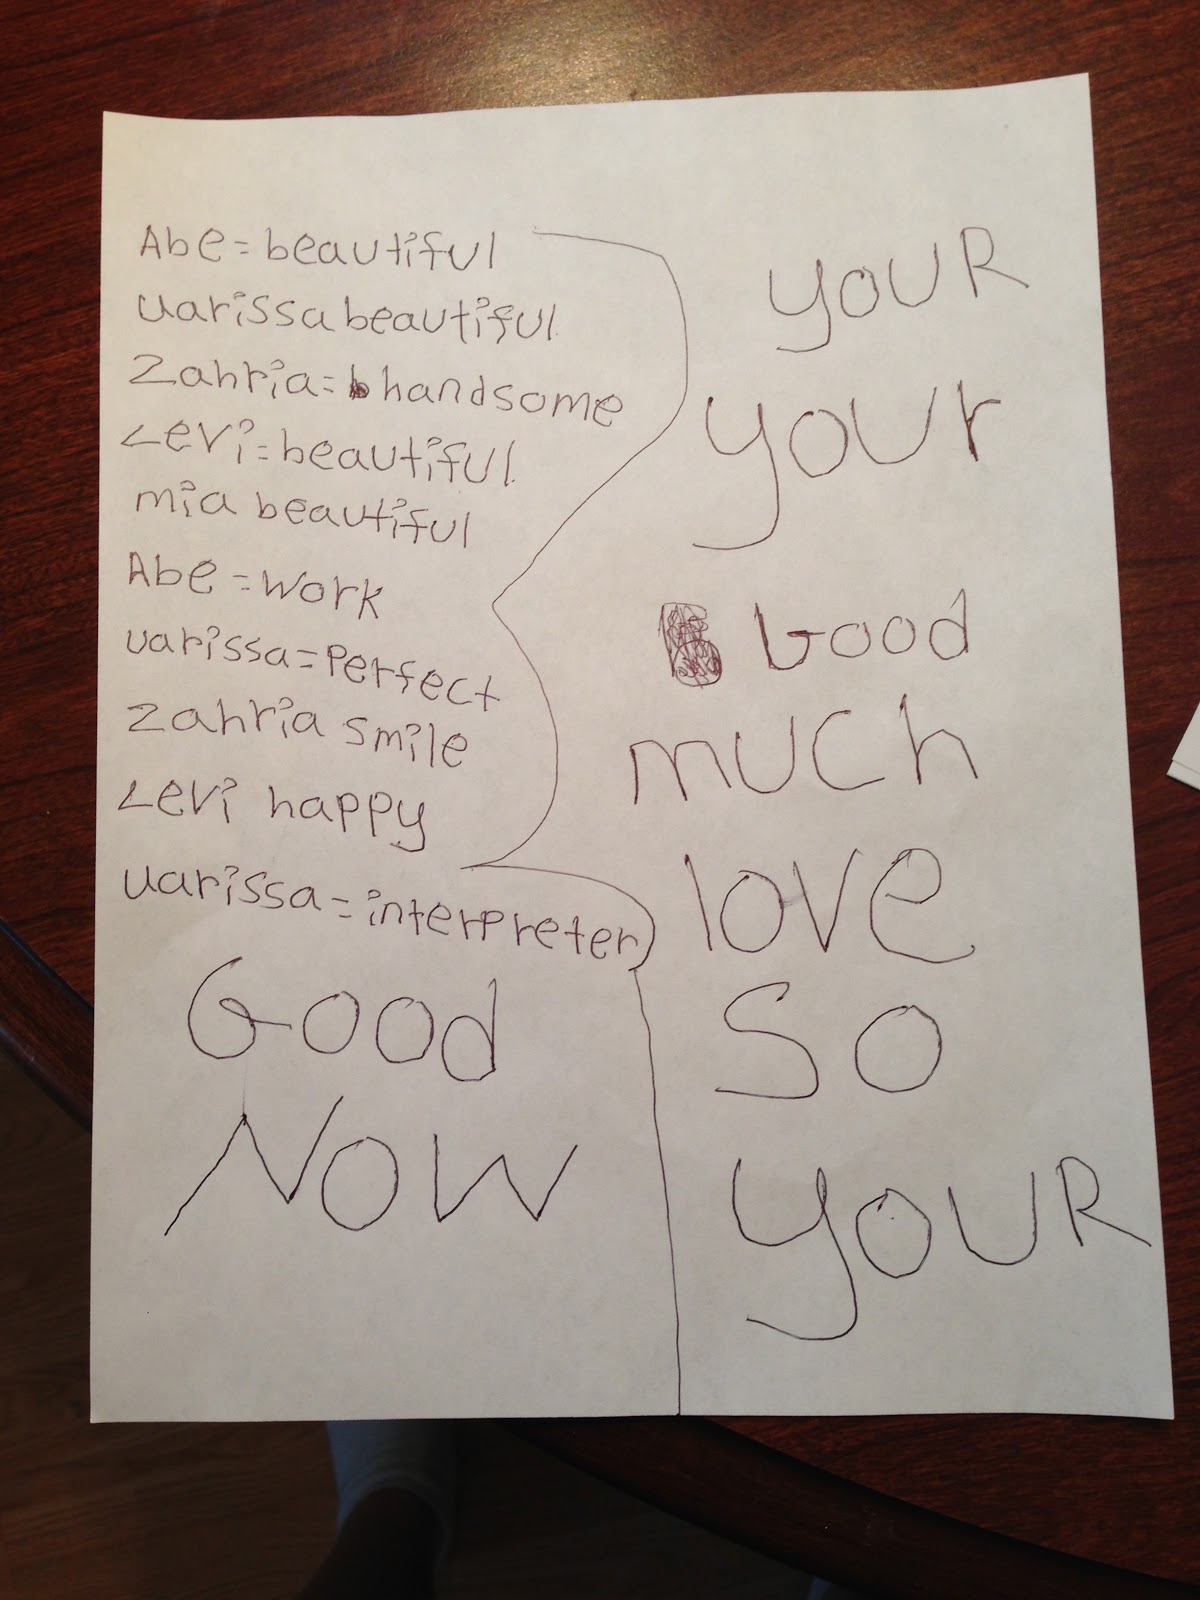 Abe = beautiful
uarissa beautiful
Zahria = handsome
Levi = beautiful
mia beautiful
Abe = work
uarissa = Perfect
Zahria smile
Levi happy
uarissa = interpreter
Good
NOW
youR
your
Good
much
love
So
youR